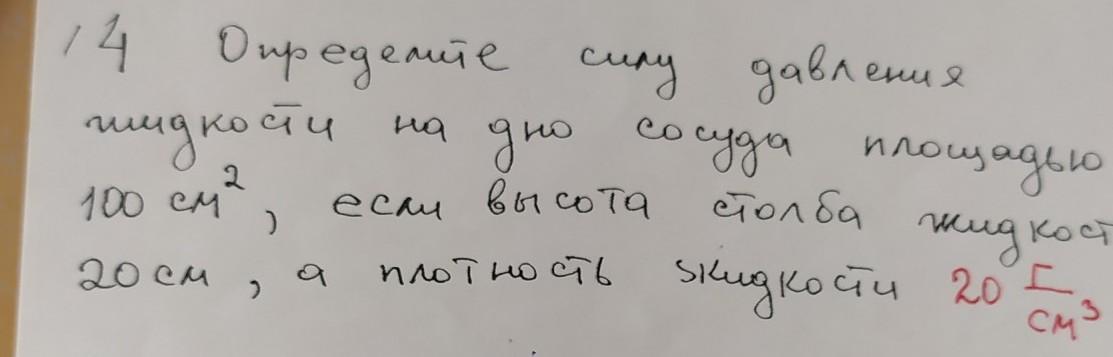 14 Определите силу давления
жидкости на дно сосуда площадью
100 см², если высота столба жидкост
20 см, а плотность жидкости 20 г/см³